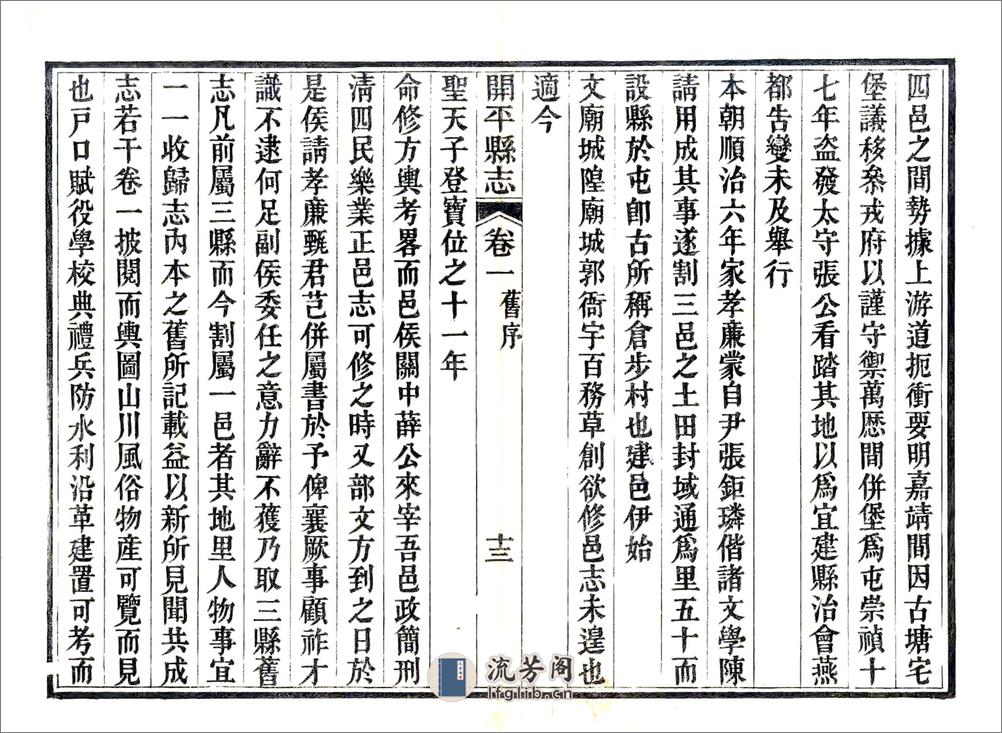 四邑之間勢據上游道扼衝要明嘉靖間因古塘宅
堡議移叅戎府以謹守禦萬歴間併堡爲屯崇禎十
七年盜發太守張公看踏其地以爲宜建縣治會燕
都告變未及舉行
本朝順治六年家孝廉蒙自尹張鉅璘偕諸文學陳
請用成其事遂割三邑之土田封域通爲里五十而
設縣於屯卽古所稱倉步村也建邑伊始
文廟城隍廟城郭衙宇百務草創欲修邑志未遑也
適今
開平縣志 卷一 舊序 十三
聖天子登寶位之十一年
命修方輿考畧而邑侯關中薛公來宰吾邑政簡刑
淸四民樂業正邑志可修之時又部文方到之日於
是侯請孝廉甄君芑併屬書於予俾襄厥事顧祚才
識不逮何足副侯委任之意力辭不獲乃取三縣舊
志凡前屬三縣而今割屬一邑者其地里人物事宜
一一收歸志內本之舊所記載益以新所見聞共成
志若干卷一披閱而輿圖山川風俗物産可覽而見
也戸口賦役學校典禮兵防水利沿革建置可考而
流芳阁
lfglib.cn